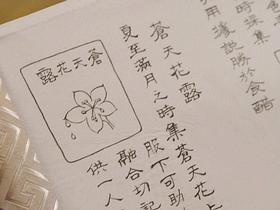 時深集
用濾說勝於食醋
蒼天花露
夏至滿月之時集蒼天花上
服下可助
融合切記
供一人
蒼天花露